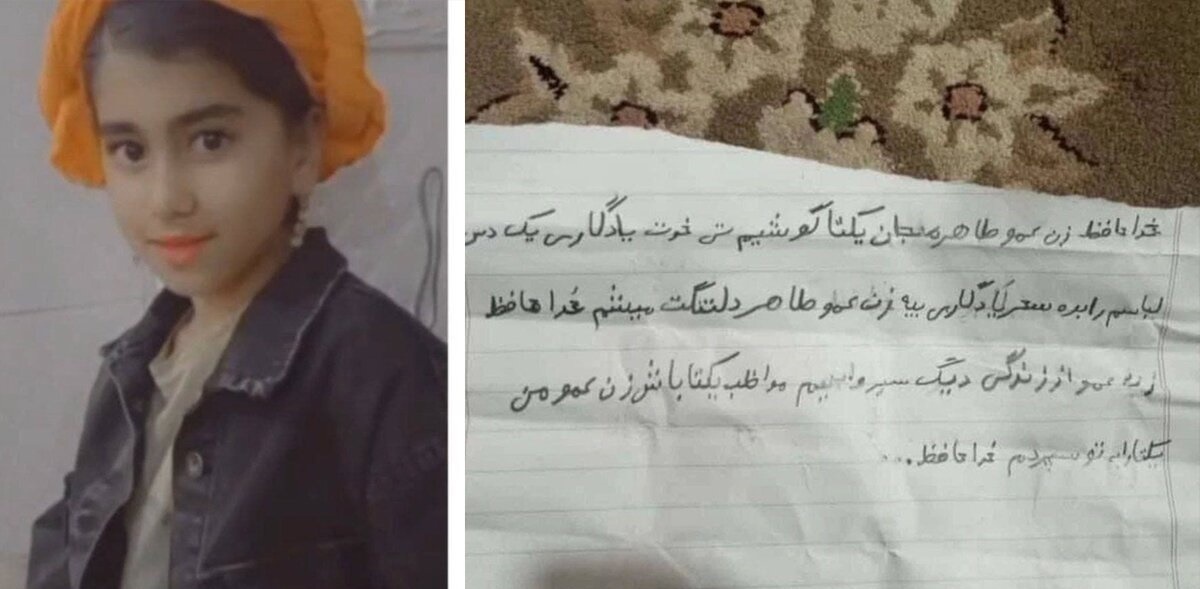 خداحافظ زن عمو طاهره جان یکتا گوشیم تش خوت یادگاری یک دس
لباسم را بده سحر یادگاری زن عمو طاهر دلتنگت میشم خداحافظ
زن عمو از زندگی دیگ سیر مواظب یکتا باش زن عمو من
یکتارا به تو سپردم خداحافظ...